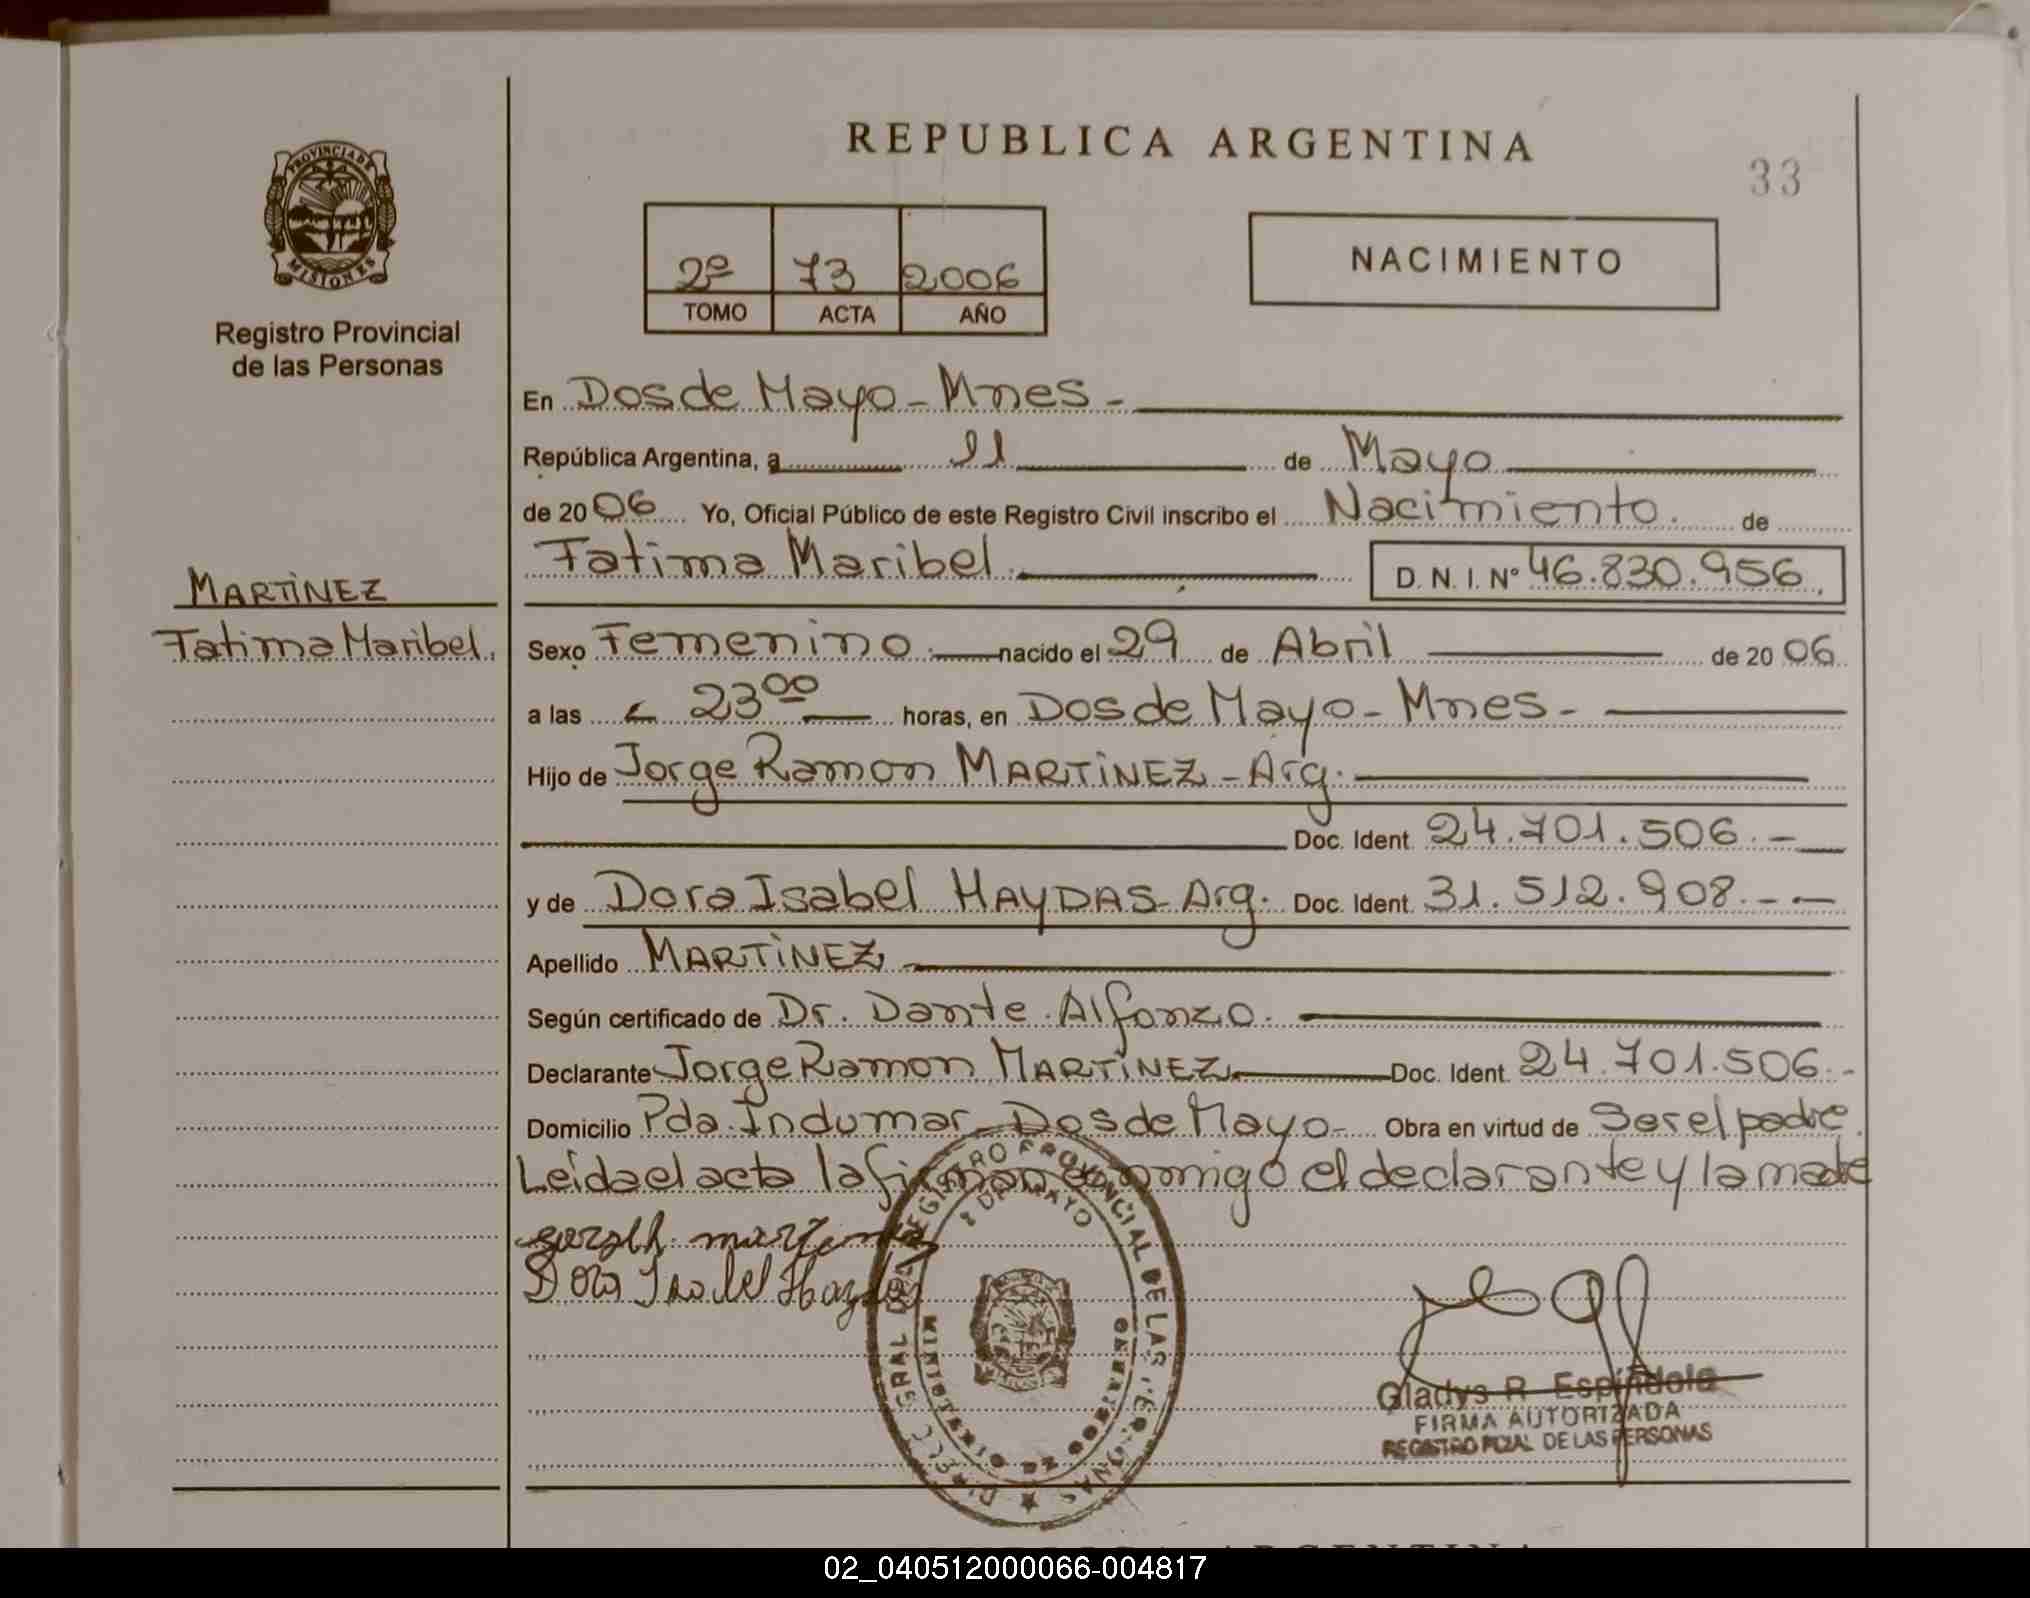 REPUBLICA ARGENTINA
33
PROVINCIA DE
MISIONES
Registro Provincial
de las Personas
2º 73 2006
TOMO ACTA AÑO
NACIMIENTO
En Dos de Mayo - Mnes -
República Argentina, a 11 de Mayo
de 2006 Yo, Oficial Público de este Registro Civil inscribo el Nacimiento. de
Fatima Maribel. D. N. I. Nº 46.830.956
MARTÍNEZ
Fatima Maribel.
Sexo Femenino. nacido el 29 de Abril de 2006
a las 23⁰⁰ horas, en Dos de Mayo - Mnes -
Hijo de Jorge Ramon MARTÍNEZ - Arg.
Doc. Ident. 24.701.506. -
y de Dora Isabel HAYDAS - Arg. Doc. Ident. 31.512.908. - -
Apellido MARTÍNEZ
Según certificado de Dr. Dante Alfonzo.
Declarante Jorge Ramon MARTÍNEZ Doc. Ident. 24.701.506. -
Domicilio Pda. Indumar - Dos de Mayo - Obra en virtud de Ser el padre.
Leida el acta la firman conmigo el declarante y la madre
Dora Isabel
REGISTRO PROVINCIAL DE LAS PERSONAS
2 DE MAYO
MINISTERIO DE GOBIERNO
Gladys R. Espíndola
FIRMA AUTORIZADA
REGISTRO PCIAL. DE LAS PERSONAS
02_040512000066-004817